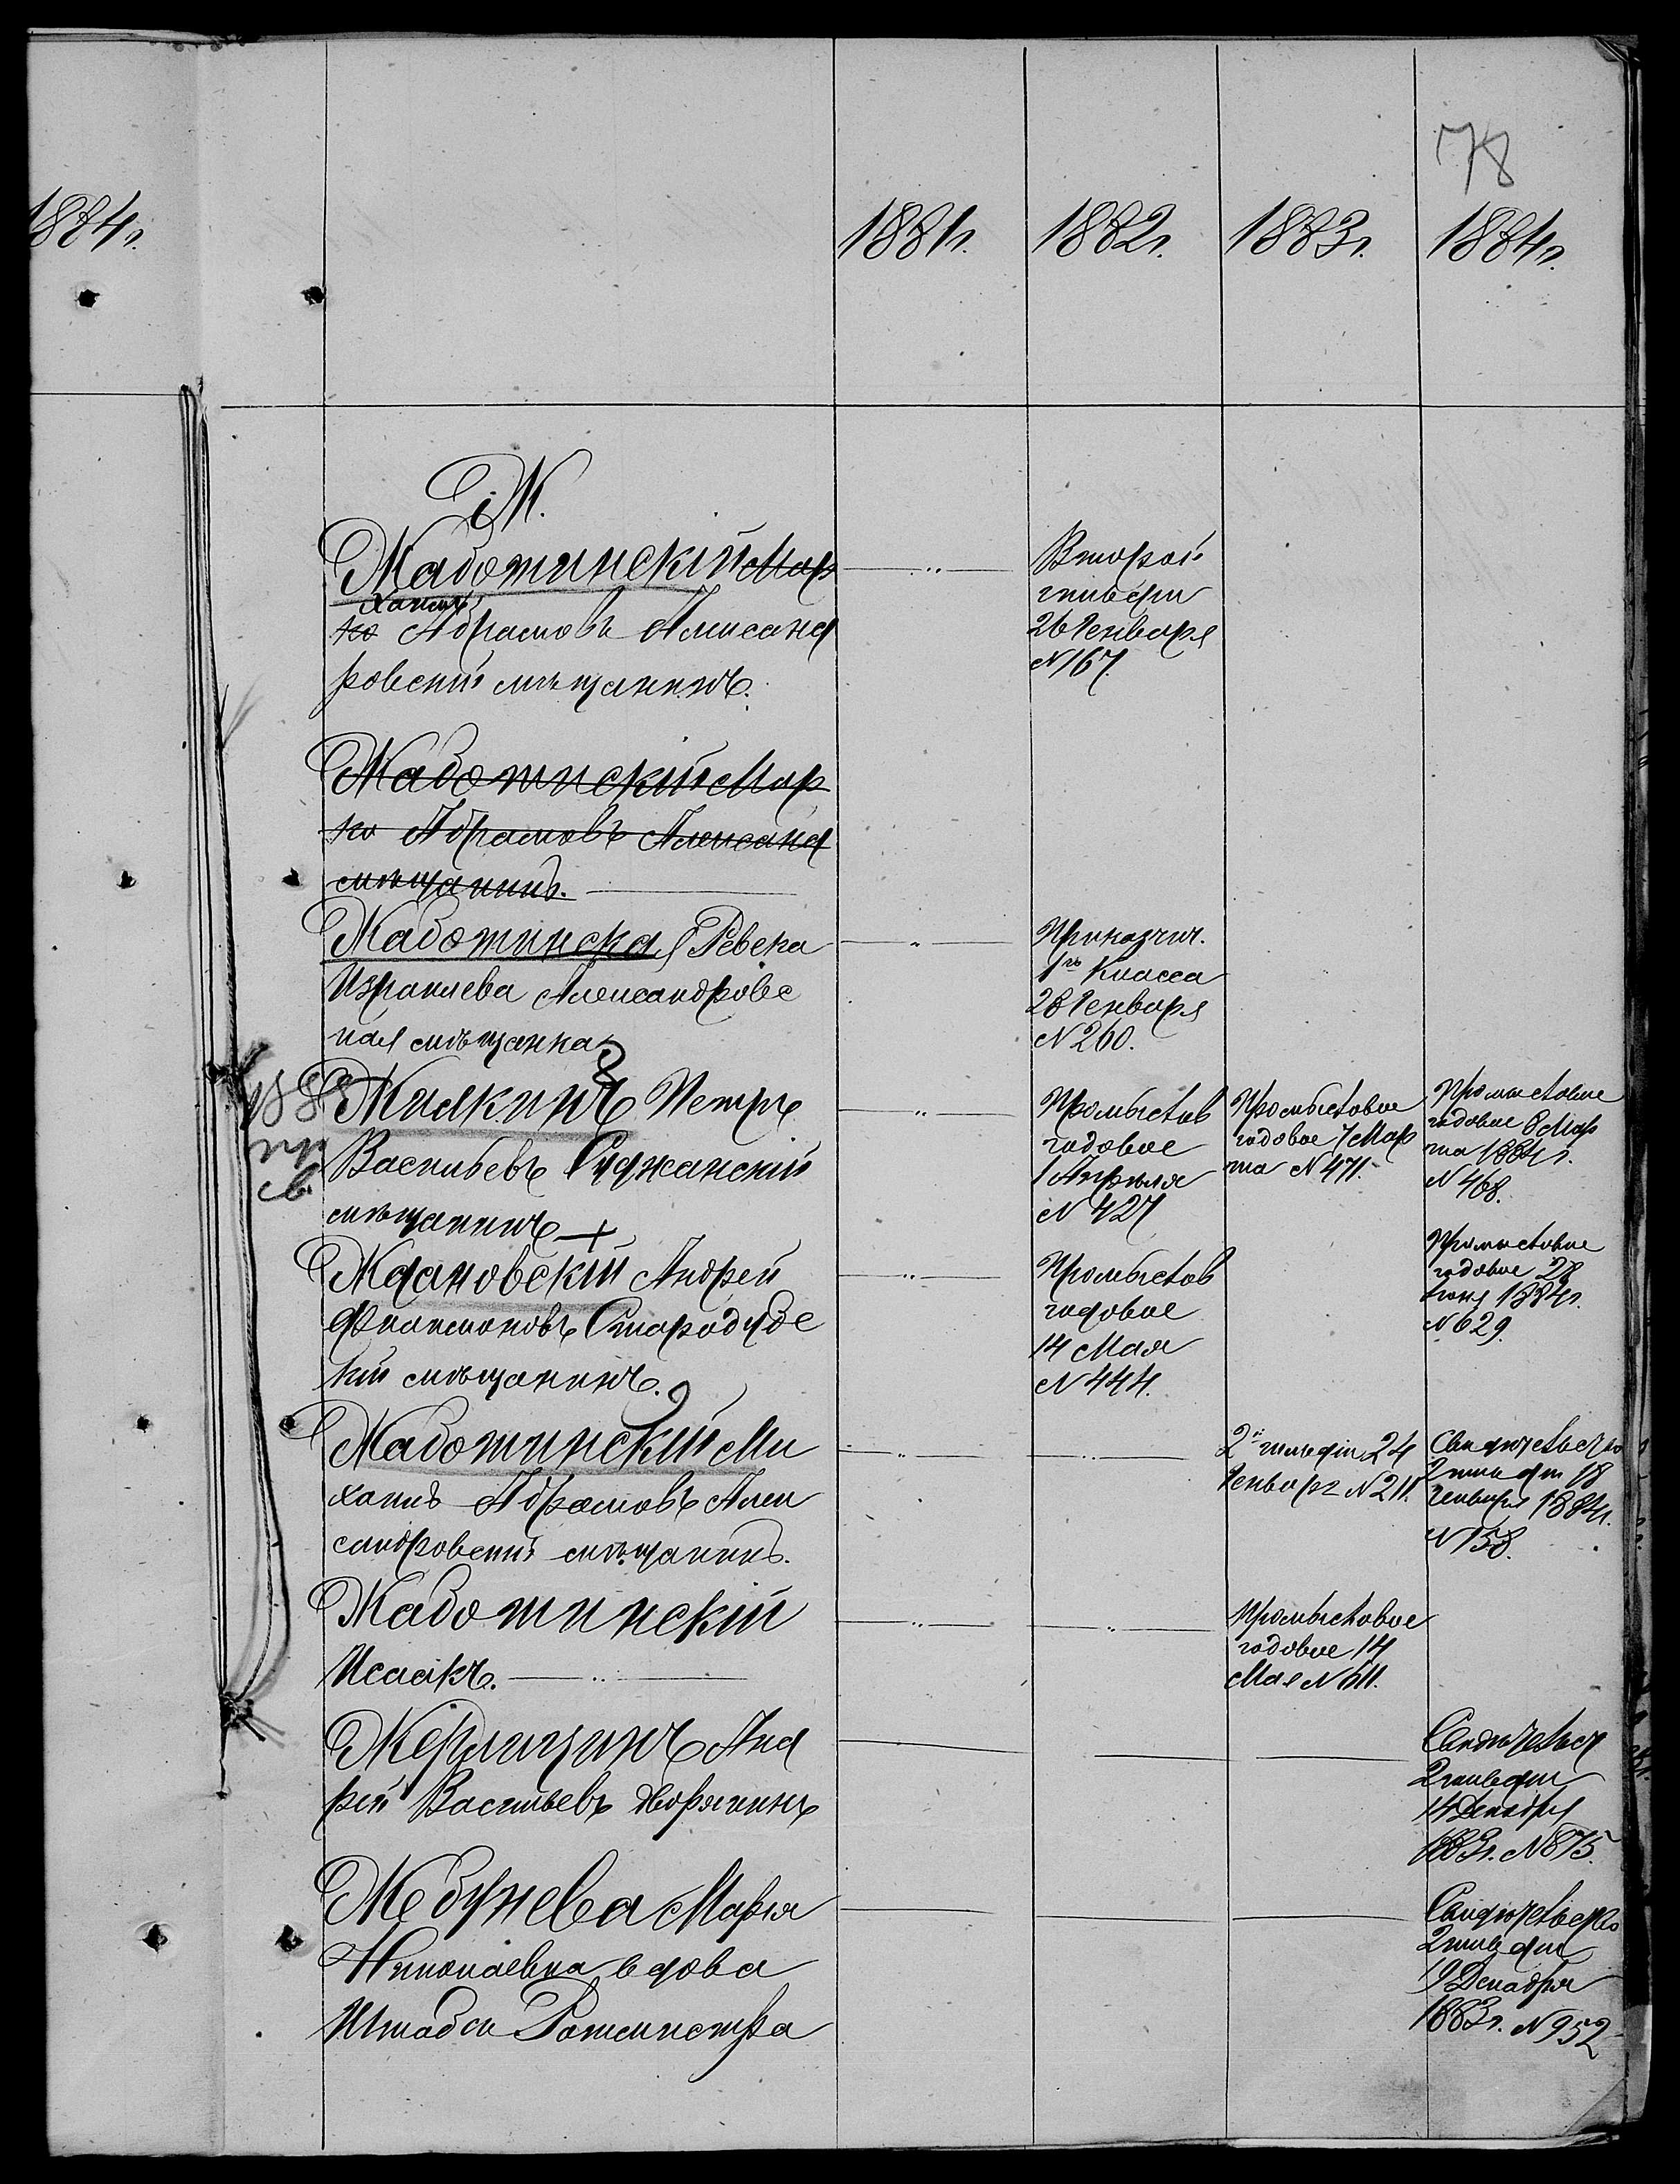 78
1884г.
1881г. 1882г. 1883г. 1884г.
Ж.
Жаботинскій Мар
хаимъ
ко Абрамовъ Алисанд
ровскій мѣщанинъ.
Второй
гильдіи
26 Генваря
N 167.
Жаботинскій Мар
ко Абрамовъ Александ
мѣщанинъ.
Жаботинская Ревека
Израилева Александровс
кая мѣщанка
Приказчич.
1го Класса
28 Генваря
N 260.
Жилкинъ Петръ
Васильевъ Суджанскій
мѣщанинъ
Промыслов
годовое
1 Апрѣля
N 427
Промысловое
годовое 7 Мар
та N 471.
Промысловое
годовое 8 Мар
та 1884г.
N 468.
Ждановскій Андрей
Стародубс
кій мѣщанинъ.
Промыслов
годовое
14 Мая
N 444.
Промысловое
годовое 28
1884г.
N 629.
Жаботинскій Ми
хаилъ Абрамовъ Алек
сандровскій мѣщанинъ.
2й гильдіи 24
Генваря N 211.
Свидѣтельство
2 гильдіи 18
Генваря 1884г.
N 158.
Жаботинскій
Исаакъ.
Промысловое
годовое 14
Мая N 611.
Жерлицинъ Анд
рей Васильевъ дворянинъ
Свидѣтельст
2 гильдіи
14 Декабря
1883г. N 875.
Жебунева Марія
Николаевна вдова
Штабсъ Ротмистра
Свидѣтельство
2 гильдіи
19 Декабря
1883г. N 952